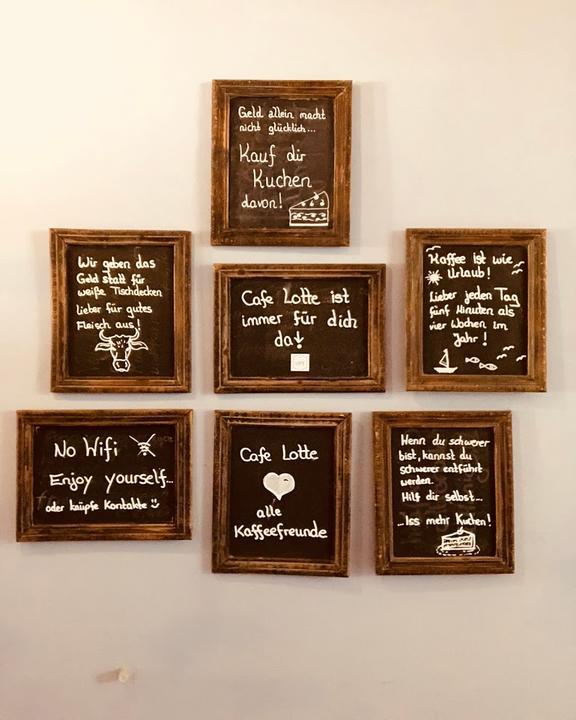 Geld allein macht
nicht glücklich...
Kauf dir
Kuchen
davon!
Wir geben das
Geld statt für
weiße Tischdecken
lieber für gutes
Fleisch aus!
Cafe Lotte ist
immer für dich
da!
Kaffee ist wie
Urlaub!
Lieber jeden Tag
fünf Minuten als
vier Wochen im
Jahr!
No Wifi
Enjoy yourself...
oder knüpfe Kontakte
Cafe Lotte
alle
Kaffeefreunde
Wenn du schwerer
bist, kannst du
schwerer entführt
werden.
Hilf dir selbst...
...Iss mehr Kuchen!